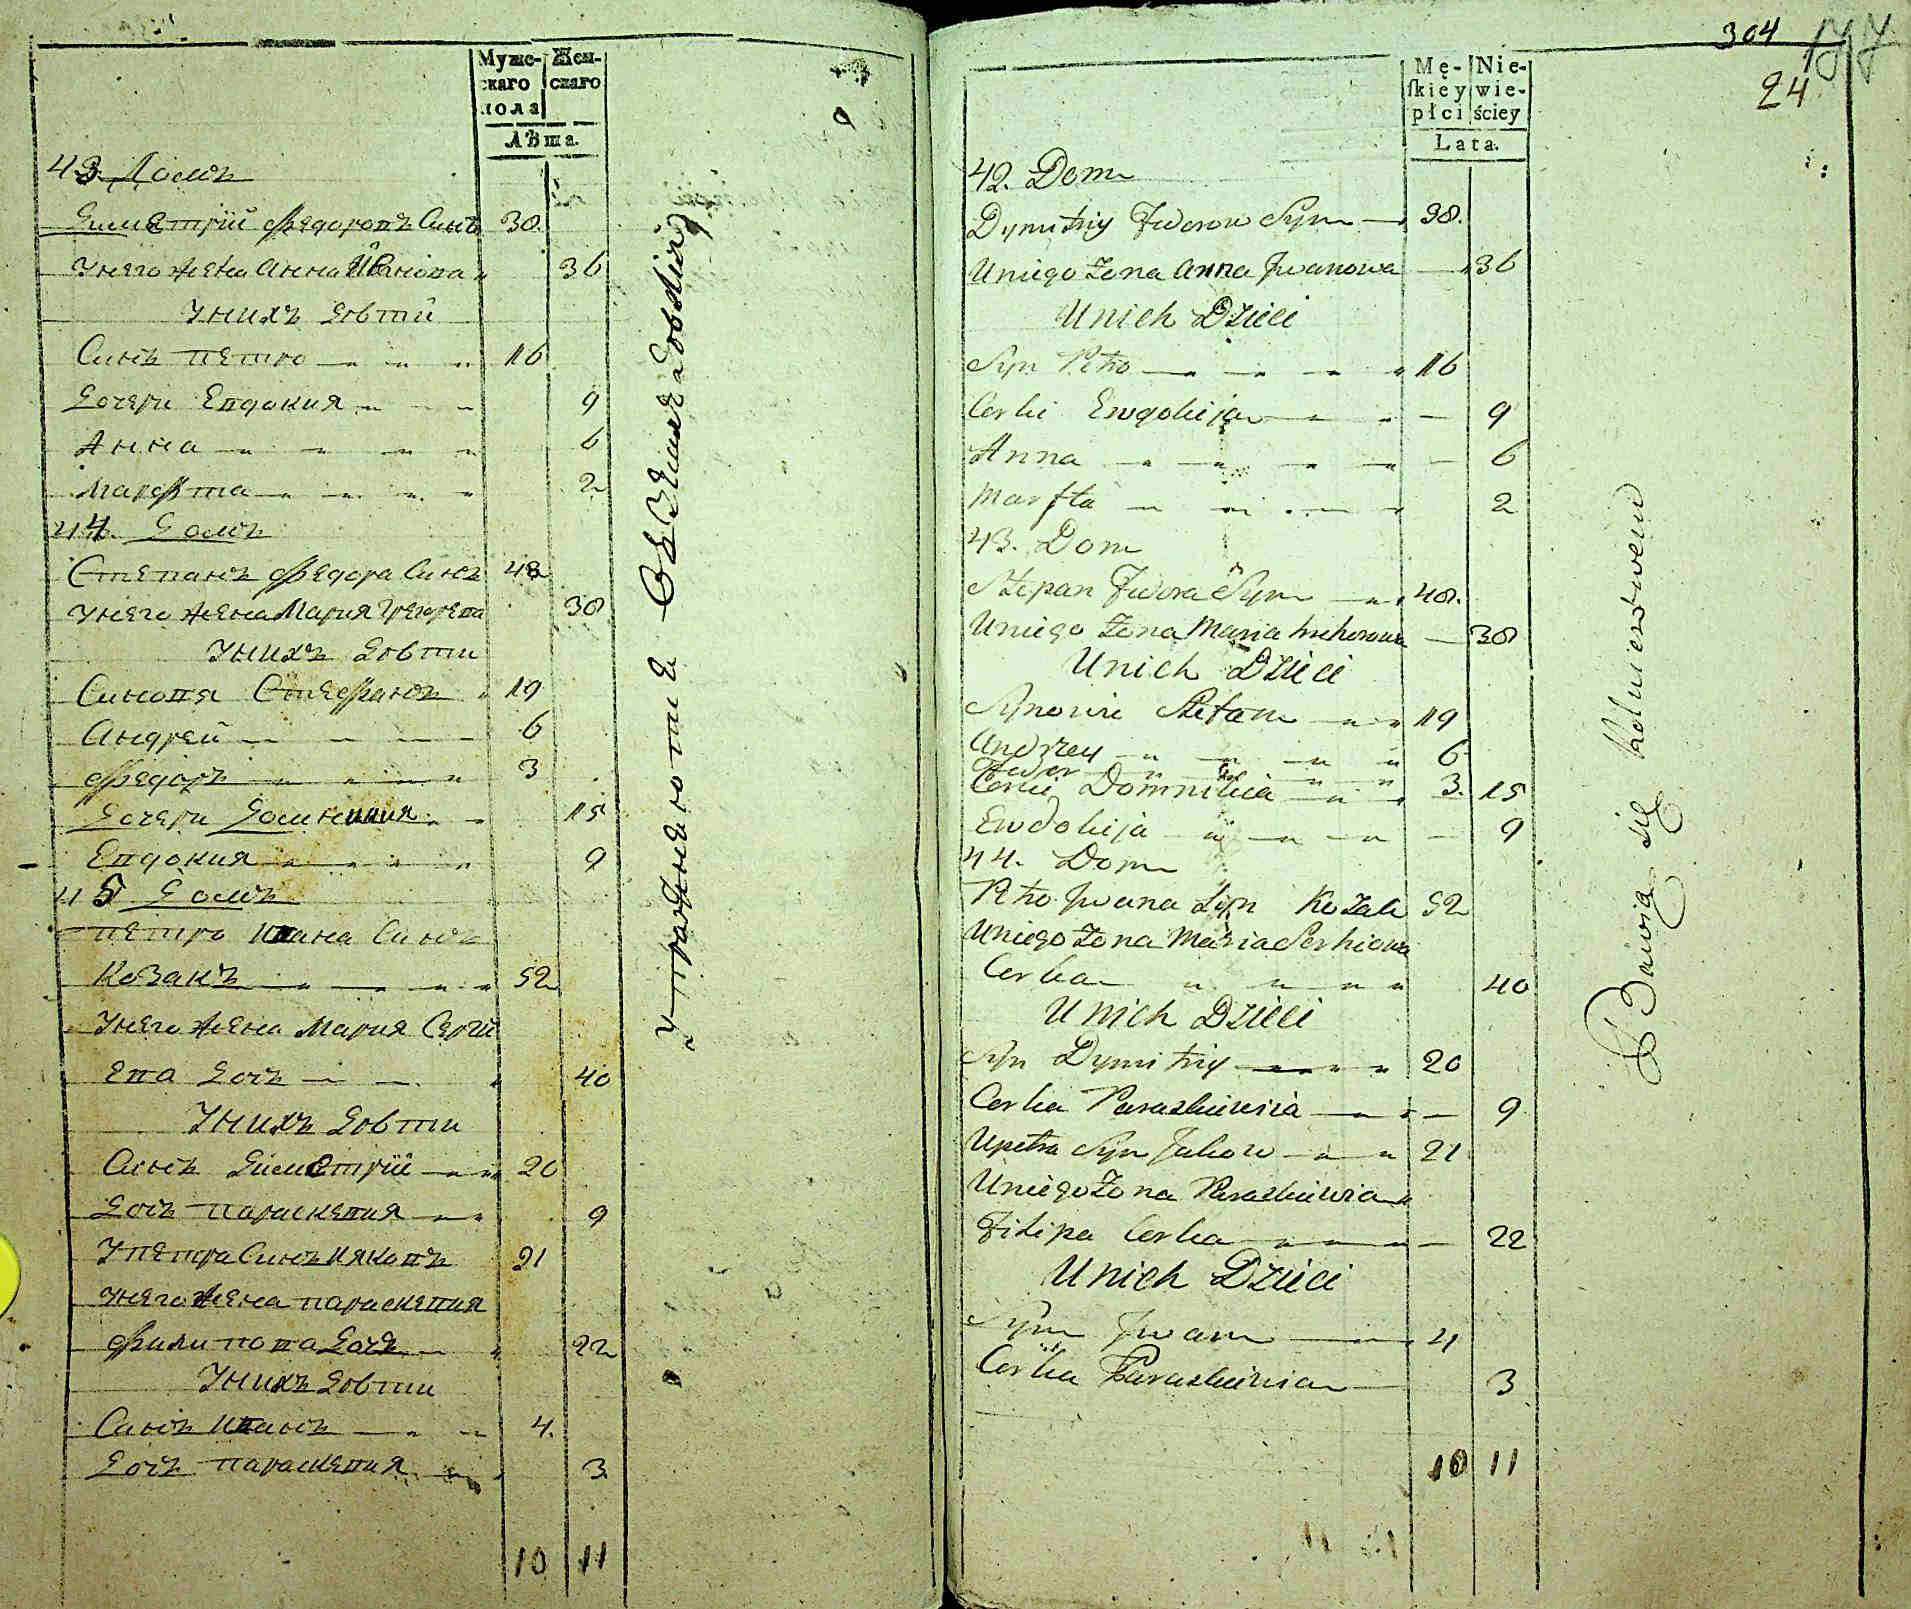 Муже-
скаго
пола
Жен-
скаго
Лѣта.
43. Домъ
Диметрїй Федоровъ Синъ 38.
Унего жена Анна Иванова 36
Унихъ Дѣти
Синъ Петро 16
Дочери Евдокия 9
Анна 6
Марфта 2
44. Домъ
Степанъ Федора Синъ 48
Унего жена Мария 38
Унихъ Дѣти
Синовя Стефанъ 19
Андрей 6
Федоръ 3
Дочери 15
Евдокия 9
45 Домъ
Петро Ивана Синъ
Козакъ 52
Унего жена Мария Сергї
ева Дочъ 40
Унихъ Дѣти
Синъ Диметрїй 20
Дочъ Параскевия 9
У Петра Синъ Ияковъ 21
Унего жена Параскевия
Филипова Дочъ 22
Унихъ Дѣти
Синъ Иванъ 4.
Дочъ Параскевия 3
10 11
Упражняются
304
24
Mę-
skiey
płci
Nie-
wie-
ściey
Lata.
42. Dom
Dymitriy Fwdorow Syn 38.
Uniego Zona Anna Jwanowa 36
Unich Dzieci
Syn Petro 16
Corki Ewdokija 9
Anna 6
Marfta 2
43. Dom
Stepan Fwdora Syn 48.
Uniego Zona Maria 38
Unich Dzieci
Synowie Stefan 19
Andrzey 6
Fwdor 3.
Corki Domnikia 15
Ewdokija 9
44. Dom
Petro Jwana Syn Kozak 52
Uniego Zona Maria Serhiowa
Corka 40
Unich Dzieci
Syn Dymitriy 20
Corka Paraskiewia 9
Upetra Syn Jakow 21
Uniego Zona Paraskiewia
Filipa Corka 22
Unich Dzieci
Syn Jwan 4
Corka Paraskiewia 3
10 11
Bawią się